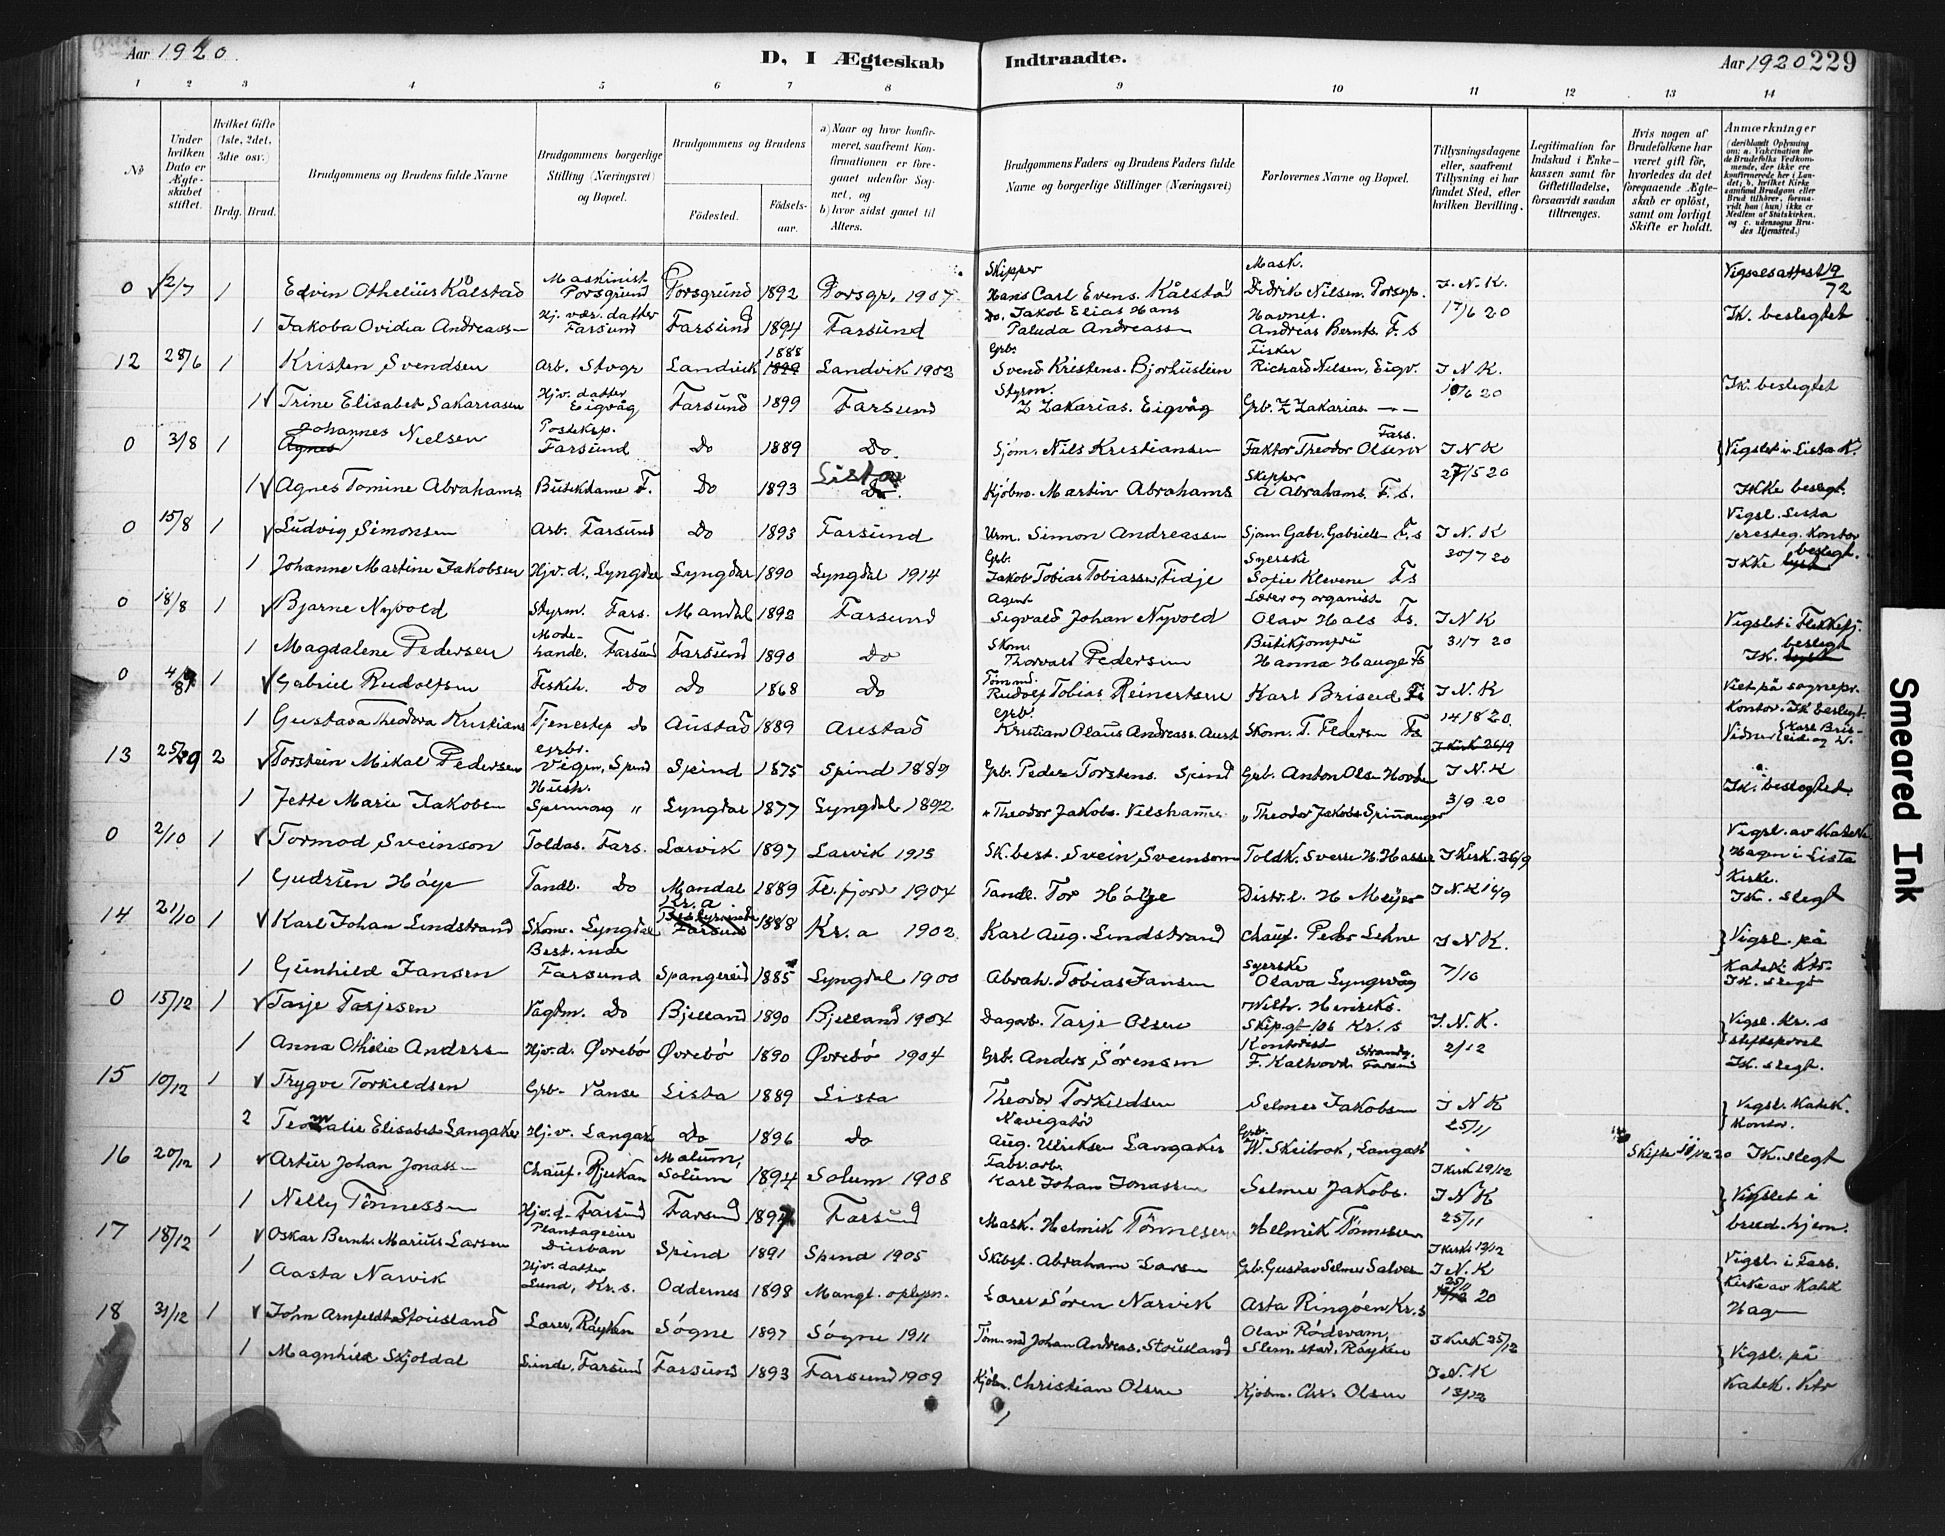 Aar 1920.
D, I Ægteskab Indtraadte.
Aar 1920 229
1 2 3 4 5 6 7 8 9 10 11 12 13 14
No
Under hvilken Dato er Ægteskabet stiftet.
Hvilket Gifte (1ste, 2det, 3die osv.)
Brdg. Brud.
Brudgommens og Brudens fulde Navne
Brudgommens borgerlige Stilling (Næringsvei) og Bopæl.
Brudgommens og Brudens
Födested.
Födselsaar.
a) Naar og hvor konfirmeret, saafremt Konfirmationen er foregaaet udenfor Sognet, og
b) hvor sidst gaaet til Alters.
Brudgommens Faders og Brudens Faders fulde Navne og borgerlige Stillinger (Næringsvei)
Forlovernes Navne og Bopæl.
Tillysningsdagene eller, saafremt Tillysning ei har fundet Sted, efter hvilken Bevilling.
Legitimation for Indskud i Enkekassen samt for Giftetilladelse, forsaavidt saadan tiltrænges.
Hvis nogen af Brudefolkene har været gift för, hvorledes da det foregaaende Ægteskab er oplöst, samt om lovligt Skifte er holdt.
Anmærkninger (deriblandt Oplysning om: a. Vakcination for de Brudefolks Vedkommende, der ikke ere konfirmerede her i Landet; b. hvilket Kirkesamfund Brudgom eller Brud tilhörer, forsaavidt han (hun) ikke er Medlem af Statskirken, og c. udensogns Brudes Hjemsted.)
0 12/7 1 Edvin Othelius Kålstad Maskinist Porsgrund Porsgrund 1892 Porsgr. 1907. Skipper Hans Carl Evens. Kålstad Mask. Didrik Nilsen. Porsgr. I. N. K. Vigselsattest 19/72
1 Jakoba Ovidia Andreass- Hj. vær. datter Farsund Farsund 1894 Farsund Do. Jakob Elias Hans Paluda Andreass Havnef. Andrias Bernts. F.s 17/6 20 Ik. beslegtet
12 28/6 1 Kristen Svendsen Arb. Stogr Landvik 1888 Landvik 1902 Grb. Svend Kristens. Bjorhustein Fisker Richard Nilsen, Eigv. I N K.
1 Trine Elisabet Sakariasen Hjv. datter Eigvåg Farsund 1899 Farsund Styrm. Z Zakarias. Eigvåg Grb. Z Zakarias — — 10/6 20 Ik. beslegtet
0 3/8 1 Johannes Nielsen Posteksp. Farsund Do 1889 Do. Sjöm. Nils Kristiansen Faktor Theodor Olsen Fars. I N K Vigslet i Lista K.
1 Agnes Tomine Abrahams. Butikdame F. Do 1893 Lista Kjöbm. Martin Abrahams Skipper A Abrahams. F. s. 27/5 20 Ikke beslegt.
0 15/8 1 Ludvig Simonsen Arb. Farsund Do 1893 Farsund Urm. Simon Andreassen Sjöm Gabr. Gabrielsn F. s I N. K Vigsl. Lista presteg. Kontor
1 Johanne Martine Jakobsen Hjv. d., Lyngdal Lyngdal 1890 Lyngdal 1914 Grb. Jakob Tobias Tobiassen, Fidje Syerske Sofie Klevene Fs 30/7 20 Ikke beslegt.
0 18/8 1 Bjarne Nyvold Styrm. Fars. Mandal 1892 Farsund Agent Sigvald Johan Nyvold Lærer og organist Olav Hals Fs. I N K Vigslet i Flekkefj.
1 Magdalene Pedersen Mode-handl. Farsund Farsund 1890 Do Skom. Thorvald Pedersen Butikjomfru Hanna Hauge Fs 31/7 20 Ik. beslegt
0 4/9 1 Gabriel Rudolfsen Fiskeh. Do Do 1868 Do Tömmd. Rudolf Tobias Reinertsen Karl Briseid Fs I N. K Viet på sognepr.
1 Gustava Theodora Kristians Tjenestep Do Austad 1889 Austad Grb. Kristian Olaus Andreass. Aust Skom. T. Pedersen Fs 14/8 20. Kontor. Ik beslegt. Vidner Karl Briseid og
13 25/9 2 Torstein Mikal Pedersen Grbr. Vigen, Spind Spind 1875 Spind 1889 Grb. Peder Torstens. Spind Grb. Anton Olsen Hovden I. N. K
1 Jette Marie Jakobsen Hush. Spinnang " Lyngdal 1877 Lyngdal 1892 " Theodor Jakobs. Velshamer " Theodor Jakobs. Spinnanger 3/9 20 Ik. beslegtet.
0 2/10 1 Tormod Sveinson Toldas. Fars. Larvik 1897 Larvik 1913 Sk. best. Svein Sveinson Toldk. Sverre H. Hassel I Kirk. 26/9 Vigsl. av Katek. Hagn i Lista Kirke.
1 Gudrun Höye Tandl. Do Mandal 1889 Fl. fjord 1904 Tandl. Tor Höye Distr. l. H Meyer I. N. K 14/9 Ik. slegt
14 21/10 1 Karl Johan Lindstrand Skom. Lyngdal Kr. a 1888 Kr. a 1902. Karl Aug. Lindstrand Chauf. Peder Lehne I N K. Vigsl. på
1 Gunhild Jansen Best.inde Farsund Spangereid 1885 Lyngdal 1900 Abrah. Tobias Jansen Syerske Olava Lyngsvåg 7/10 Katek. Ktr. Ik. slegt
0 15/12 1 Tarje Tarjesen Vagtm. Do Bjelland 1890 Bjelland 1904 Dagarb. Tarje Olsen Wilh. Henriks. Skip.gt 106 Kr. s I. N. K. Vigsl. Kr. s
1 Anna Othilie Anders- Hjv. d. Øvrebö Øvrebö 1890 Øvrebö 1904 Grb. Anders Sörensen Kontorist F. Kalhovd Strandg. Farsund 2/12 stiftsprost Ik. slegt.
15 10/12 1 Trygve Torkildsen Grb. Vanse Lista 1889 Lista Theodor Torkildsen Selmer Jakobsen I N K Vigsl. Katek.
2 Teomalie Elisabet Langaker Hj. v. Langak Do 1896 Do Navigatör Aug. Ulriksen Langaker Grb. W. Skeibrok, Langak 25/11 Skifte 10/12 20 Kontor. Ik. slegt
16 20/12 1 Artur Johan Jonass- Chauf. Rjukan Melum, Solum 1894 Solum 1908 Fabr. arb. Karl Johan Jonassen Selmer Jakobs. I Kirk 19/12 I N K Vigslet i
1 Nelly Tönnessen Hjv. d. Farsund Farsund 1897 Farsund Mask. Helmik Tönnesen Helmik Tönnesen 25/11 brud. hjem.
17 18/12 1 Oskar Bernt. Marius Larsen Plantageeier Durban Spind 1891 Spind 1905 Skibsf. Abraham Larsen Grb. Gustav Selmer Salvesen I Kirk 12/12 I N. K Vigsl. i Fars.
1 Aasta Narvik Hjv. datter Lund, Kr. s. Oddernes 1898 Mangl. oplysn. Lærer Sören Narvik Asta Ringöen Kr. s 25/11 20 Kirke av Katek Hagn
18 31/12 1 John Arnfeldt Stousland Lærer, Röyken Sögne 1897 Sögne 1911 Töm.md Johan Andreas. Stousland Olav Rödevam, Slemstad, Röyken I Kirk 25/12 Vigsl. på
1 Magnhild Skjoldal Farsund Farsund 1893 Farsund 1909 Kjöbm. Christian Olsen Kjöbm. Chr. Olsen I N. K 13/12 Katek. Ktr
Smeared Ink